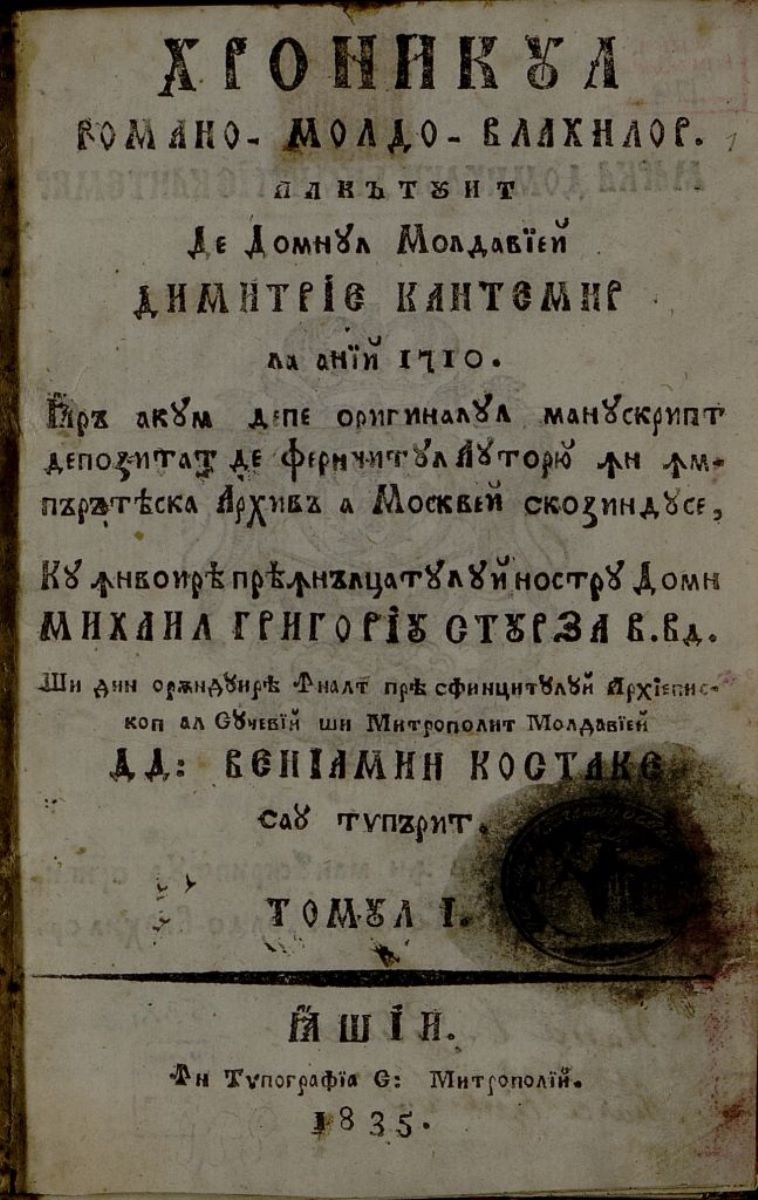 ХРОНИКꙋЛ
РОМАНО- МОЛДО- ВЛАХИЛОР.
АЛКЪТꙋИТ
Де Домнꙋл Молдавїей
ДИМИТРІЕ КАНТЕМИР
ла анїй 1710.
Ꙗръ акꙋм депе оригиналꙋл манꙋскрипт
депоꙁитат де феричитꙋл Аꙋторю ꙟн ꙟм-
пърътѣска Архивъ а Москвей скоꙁиндꙋсе,
Кꙋ ꙟнвоирѣ прѣꙟнълцатꙋлꙋй ностру Домн
МИХАИЛ ГРИГОРІꙋ СТꙋРЗА В.Вд.
Ши дин орѫндꙋирѣ Ꙟналт прѣ сфинцитꙋлꙋй Архїепис-
коп ал Сꙋчевїй ши Митрополит Молдавїей
ДД: ВЕНІАМИН КОСТАКЕ
саꙋ тѵпърит.
ТОМꙋЛ I.
ꙖШІЙ.
Ꙟн Тѵпографїа С: Митрополїй.
1835.